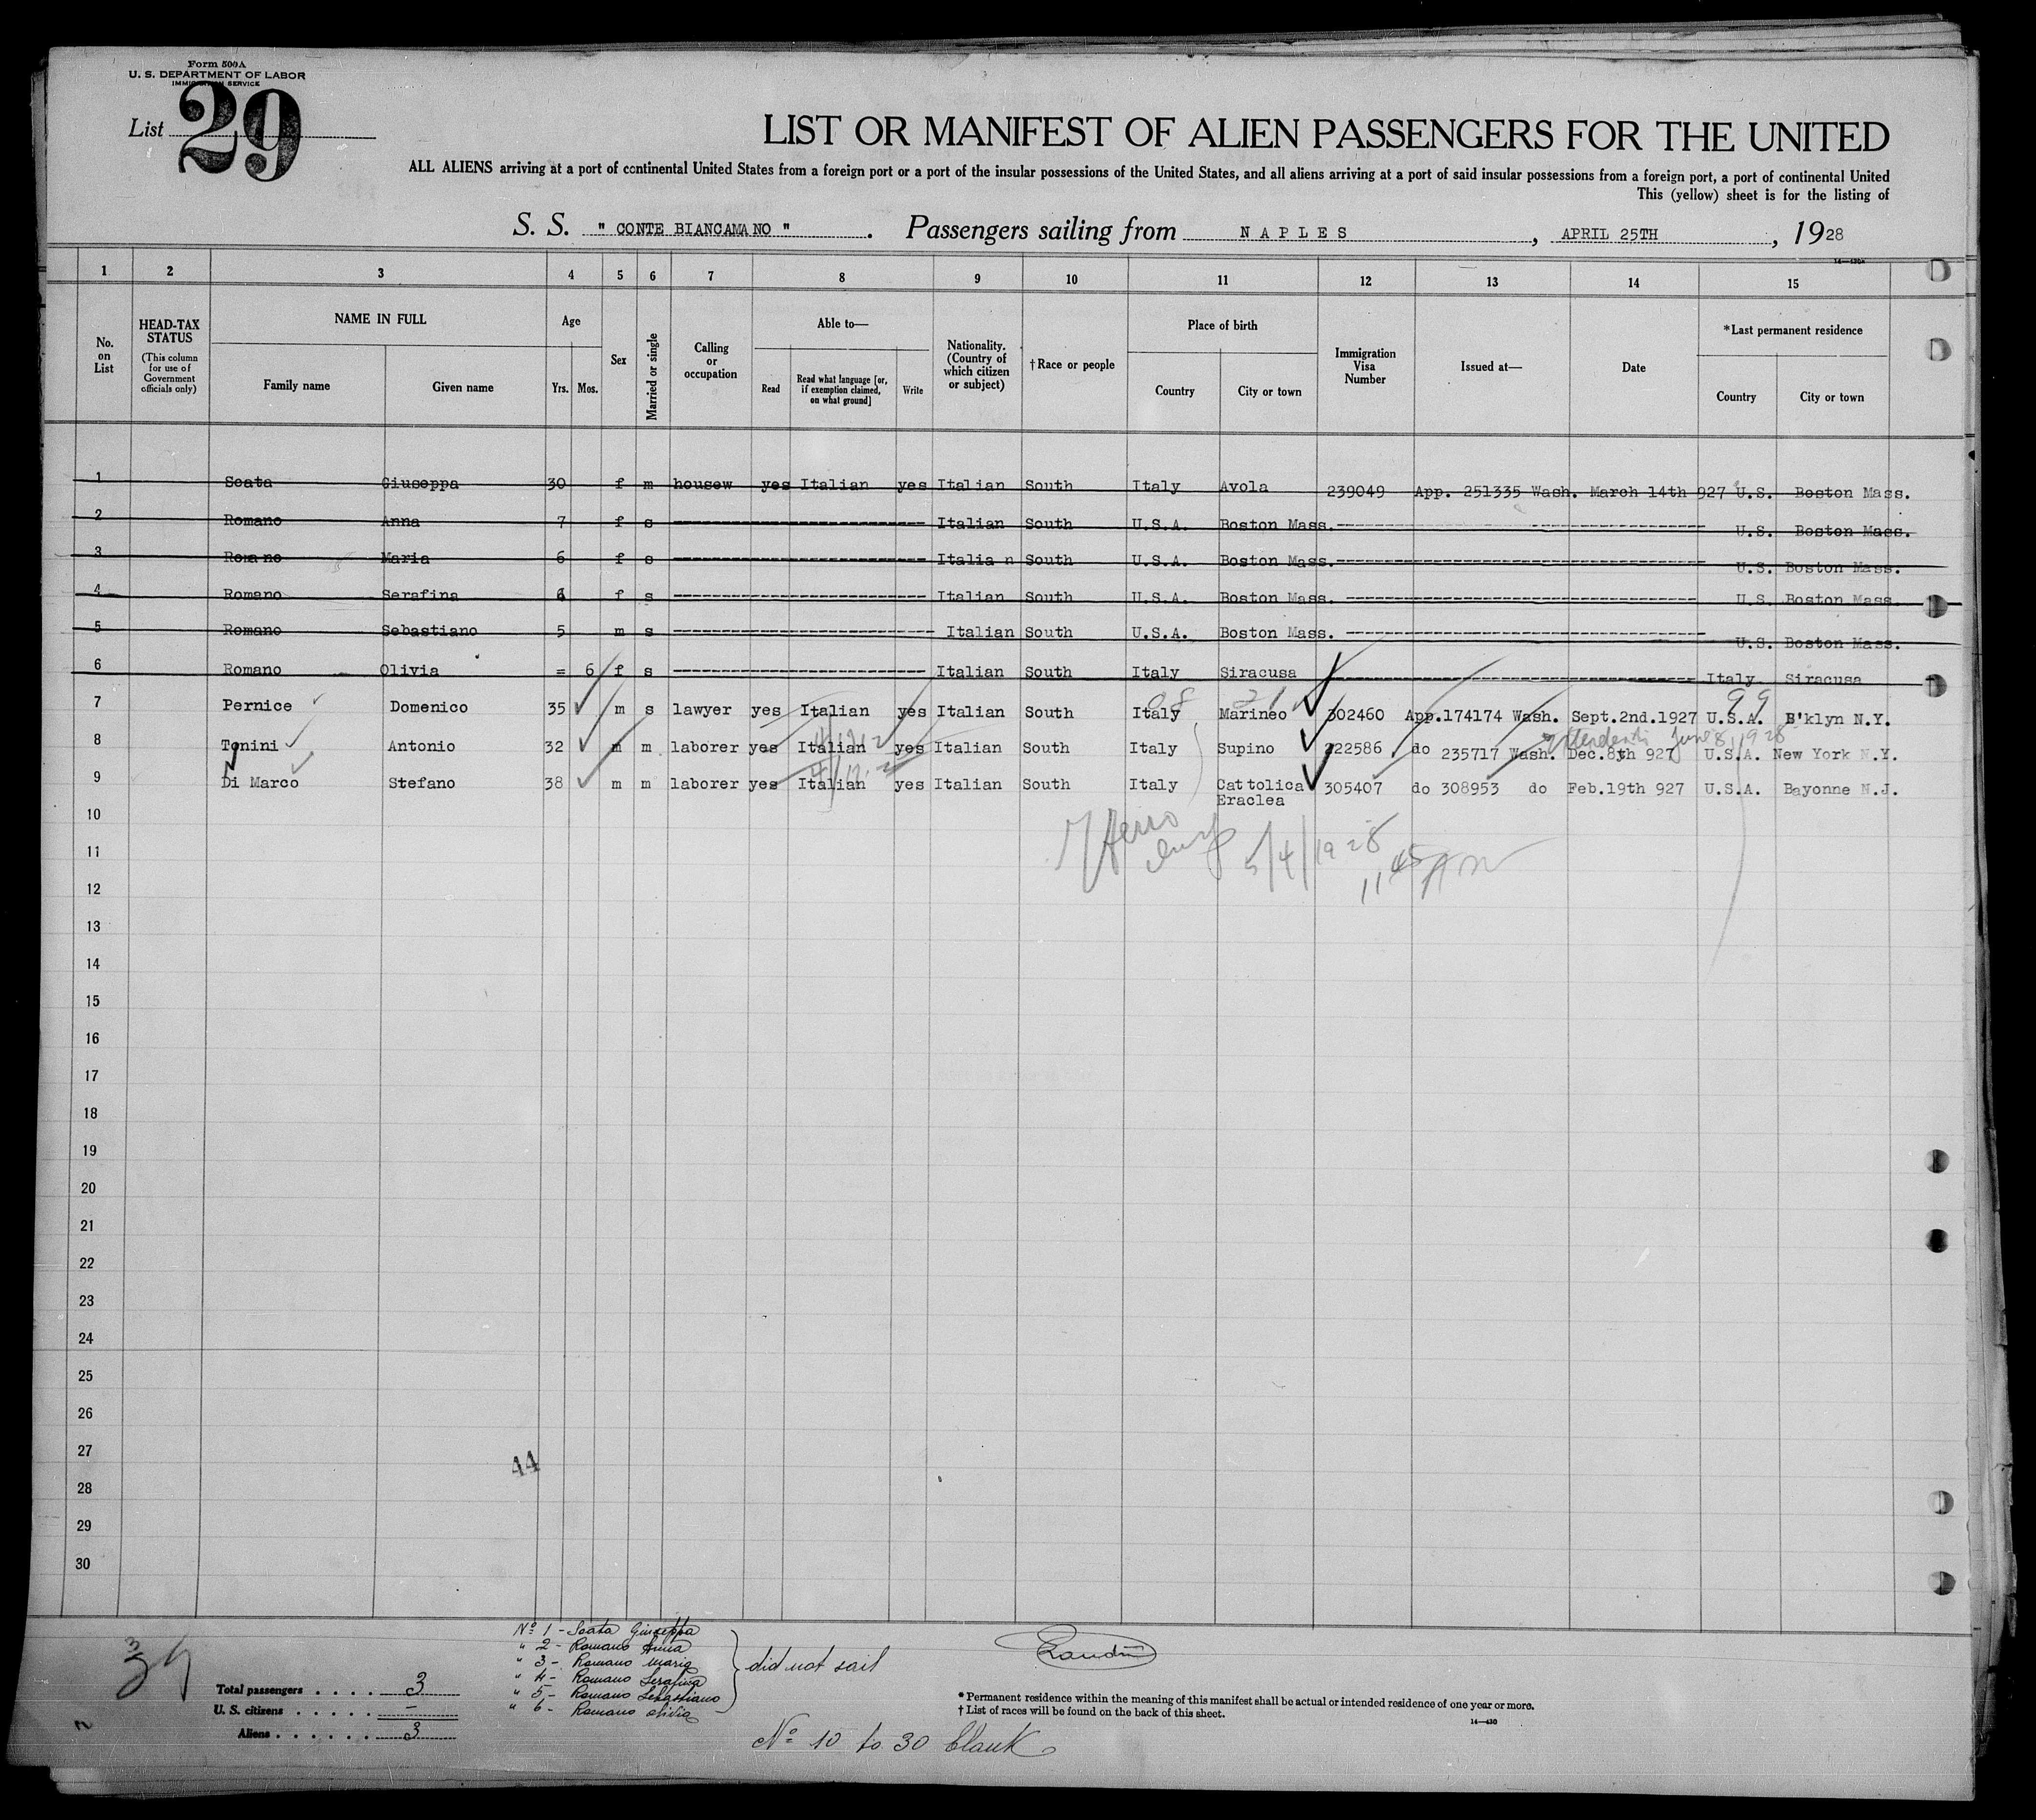 Form 500A
U. S. DEPARTMENT OF LABOR
IMMIGRATION SERVICE
List 29
LIST OR MANIFEST OF ALIEN PASSENGERS FOR THE UNITED
ALL ALIENS arriving at a port of continental United States from a foreign port or a port of the insular possessions of the United States, and all aliens arriving at a port of said insular possessions from a foreign port, a port of continental United
This (yellow) sheet is for the listing of
S. S. " CONTE BIANCAMANO " . Passengers sailing from NAPLES , APRIL 25TH , 1928
14—430a
1 2 3 4 5 6 7 8 9 10 11 12 13 14 15
No. on List
HEAD-TAX STATUS (This column for use of Government officials only)
NAME IN FULL
Family name Given name
Age
Yrs. Mos.
Sex
Married or single
Calling or occupation
Able to—
Read Read what language [or, if exemption claimed, on what ground] Write
Nationality. (Country of which citizen or subject)
†Race or people
Place of birth
Country City or town
Immigration Visa Number
Issued at—
Date
*Last permanent residence
Country City or town
1 Scata Giuseppa 30 f m housew yes Italian yes Italian South Italy Avola 239049 App. 251335 Wash. March 14th 927 U.S. Boston Mass.
2 Romano Anna 7 f s Italian South U.S.A. Boston Mass. U.S. Boston Mass.
3 Romano Maria 6 f s Italia n South U.S.A. Boston Mass. U.S. Boston Mass.
4 Romano Serafina 6 f s Italian South U.S.A. Boston Mass. U.S. Boston Mass.
5 Romano Sebastiano 5 m s Italian South U.S.A. Boston Mass. U.S. Boston Mass.
6 Romano Olivia = 6 f s Italian South Italy Siracusa Italy Siracusa
7 Pernice Domenico 35 m s lawyer yes Italian yes Italian South Italy Marineo 302460 App.174174 Wash. Sept.2nd.1927 U.S.A. B'klyn N.Y.
99
June 8, 1928
8 Tonini Antonio 32 m m laborer yes Italian yes Italian South Italy Supino 222586 do 235717 Wash. Dec.8th 927 U.S.A. New York N.Y.
9 Di Marco Stefano 38 m m laborer yes Italian yes Italian South Italy Cattolica Eraclea 305407 do 308953 do Feb.19th 927 U.S.A. Bayonne N.J.
10
5/4/1928
11 45 AM
11
12
13
14
15
16
17
18
19
20
21
22
23
24
25
26
27
44
28
29
30
Nº 1 - Scata Giuseppa
" 2 - Romano Anna
" 3 - Romano Maria
" 4 - Romano Serafina
" 5 - Romano Sebastiano
" 6 - Romano Olivia
did not sail
Total passengers 3
U. S. citizens —
Aliens 3
* Permanent residence within the meaning of this manifest shall be actual or intended residence of one year or more.
† List of races will be found on the back of this sheet.
14—430
Nº 10 to 30 blank